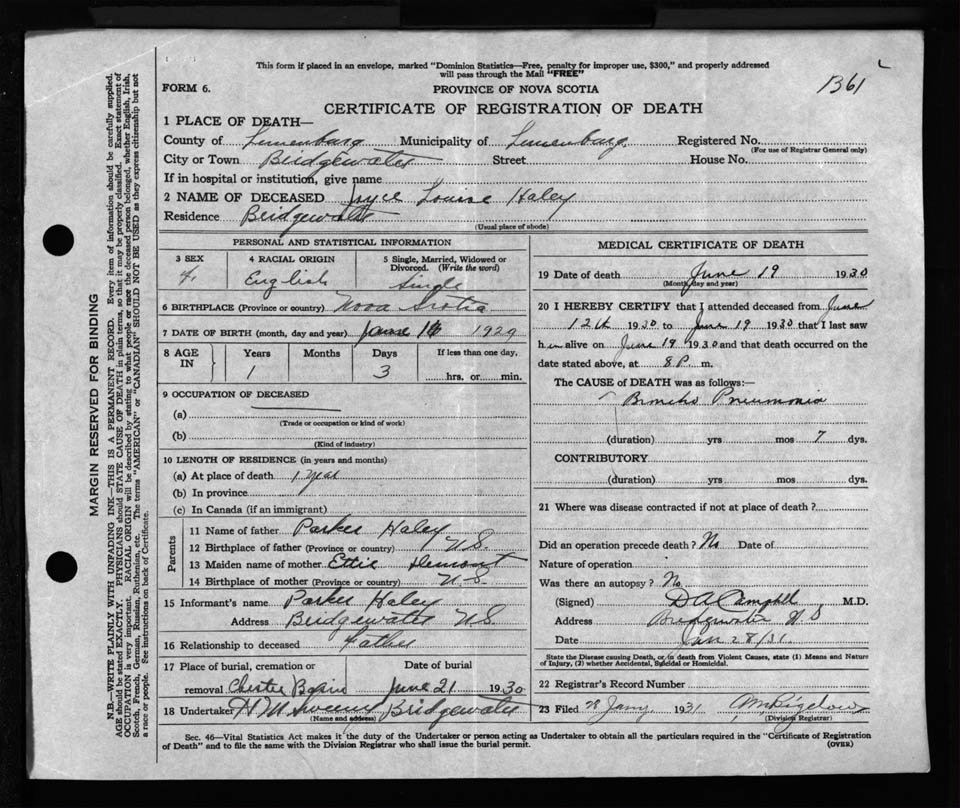 This form if placed in an envelope, marked "Dominion Statistics—Free, penalty for improper use, $300," and properly addressed
will pass through the Mail "FREE"
1361
FORM 6.
PROVINCE OF NOVA SCOTIA
CERTIFICATE OF REGISTRATION OF DEATH
1 PLACE OF DEATH—
County of Lunenburg Municipality of Lunenburg Registered No.
(For use of Registrar General only)
City or Town Bridgewater Street House No.
If in hospital or institution, give name
2 NAME OF DECEASED Joyce Louise Haley
Residence Bridgewater
(Usual place of abode)
PERSONAL AND STATISTICAL INFORMATION
3 SEX 4 RACIAL ORIGIN 5 Single, Married, Widowed or
Divorced. (Write the word)
F. English Single
6 BIRTHPLACE (Province or country) Nova Scotia
7 DATE OF BIRTH (month, day and year) June 16 1929
8 AGE IN Years Months Days If less than one day,
1 3 hrs. or min.
9 OCCUPATION OF DECEASED
(a)
(Trade or occupation or kind of work)
(b)
(Kind of industry)
10 LENGTH OF RESIDENCE (in years and months)
(a) At place of death 1 year
(b) In province
(c) In Canada (if an immigrant)
Parents
11 Name of father Parker Haley
12 Birthplace of father (Province or country) N.S.
13 Maiden name of mother Ettie Demont
14 Birthplace of mother (Province or country) N.S.
15 Informant's name Parker Haley
Address Bridgewater N.S.
16 Relationship to deceased Father
17 Place of burial, cremation or Date of burial
removal Chester Basin June 21 1930
18 Undertaker Bridgewater
(Name and address)
MEDICAL CERTIFICATE OF DEATH
19 Date of death June 19 1930
(Month, day and year)
20 I HEREBY CERTIFY that I attended deceased from June
12th 1930 to June 19 1930 that I last saw
her alive on June 19 1930 and that death occurred on the
date stated above, at 8 P. m.
The CAUSE of DEATH was as follows:—
Broncho Pneumonia
(duration) yrs mos 7 dys.
CONTRIBUTORY
(duration) yrs mos dys.
21 Where was disease contracted if not at place of death?
Did an operation precede death? No Date of
Nature of operation
Was there an autopsy? No
(Signed) D A Campbell M.D.
Address Bridgewater N.S
Date Jan 28/31.
State the Disease causing Death, or in death from Violent Causes, state (1) Means and Nature
of Injury, (2) whether Accidental, Suicidal or Homicidal.
22 Registrar's Record Number
23 Filed 28 Jany 1931
(Division Registrar)
Sec. 46—Vital Statistics Act makes it the duty of the Undertaker or person acting as Undertaker to obtain all the particulars required in the "Certificate of Registration
of Death" and to file the same with the Division Registrar who shall issue the burial permit.
(OVER)
MARGIN RESERVED FOR BINDING
N.B.—WRITE PLAINLY WITH UNFADING INK—THIS IS A PERMANENT RECORD. Every item of information should be carefully supplied.
AGE should be stated EXACTLY. PHYSICIANS should STATE CAUSE OF DEATH in plain terms, so that it may be properly classified. Exact statement of
OCCUPATION is very important. RACIAL ORIGIN will be described by stating to what people or race the deceased person belonged, whether English, Irish,
Scotch, French, German, Russian, Ruthenian, etc. The terms "AMERICAN" or "CANADIAN" SHOULD NOT BE USED as they express citizenship but not
a race or people. See instructions on back of Certificate.